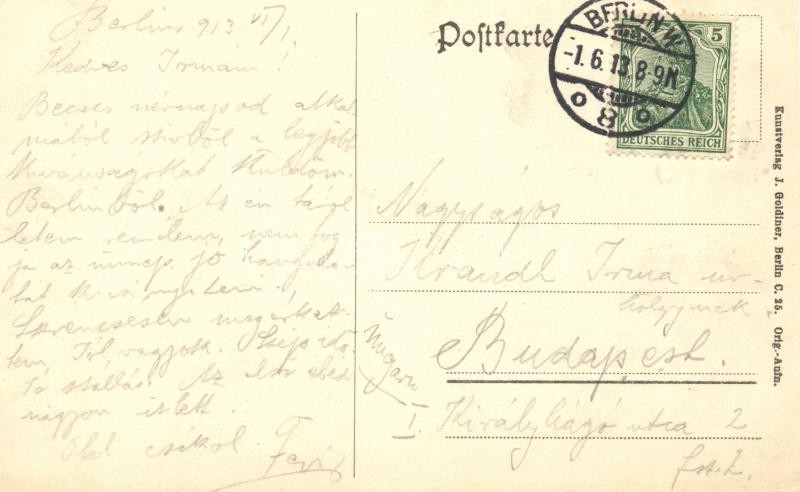 Berlin, 913 VI/1
Kedves Irmám!
Becses névnapod alkal
mából szívből a legjobb
kívánságokat küldöm
Berlinből. Az én távol
létem remélem, nem fog
ja az ünnepi jó hangula
tát kicsinyíteni!
Szerencsésen megérkez
tem, Jól vagyok. Szép idő.
Jó szállás. Az ebéd
nagyon ízlett.
Ölel csókol
Feri
Postkarte
BERLIN W.
-1.6.13.8-9N
8
5
DEUTSCHES REICH
Nagyságos
Krandl Irma úr-
hölgynek
Budapest.
Ungarn
I. Királyhágó utca 2
fst. 2.
Kunstverlag J. Goldiner, Berlin C. 25. Orig.-Aufn.